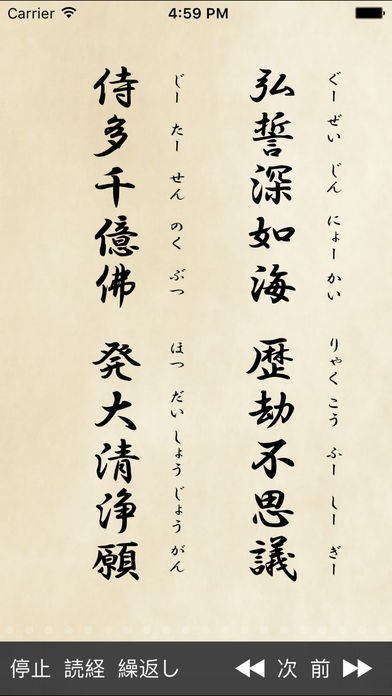 Carrier 4:59 PM
ぐーぜいじんにょーかい りゃくこうふーしーぎー
弘誓深如海 歴劫不思議
じーたーせんのくぶつ ほつだいしょうじょうがん
侍多千億佛 発大清浄願
停止 読経 繰返し 次 前